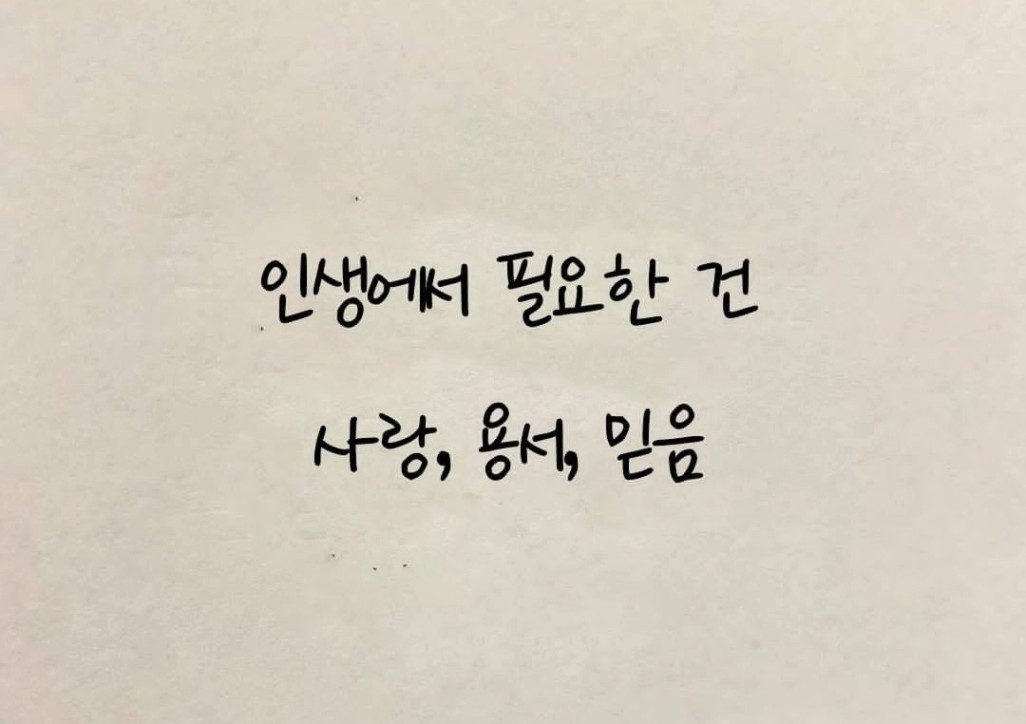 인생에서 필요한 건
사랑, 용서, 믿음